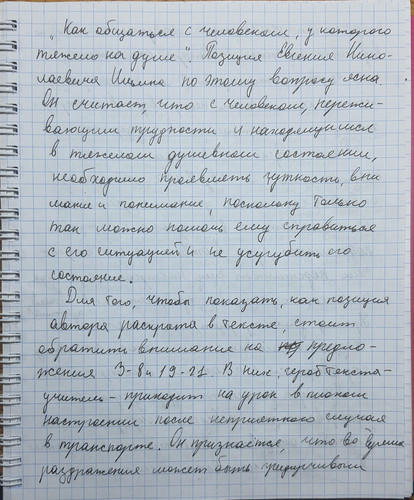 „Как общаться с человеком, у которого
тяжело на душе". Позиция Евгения Нико-
лаевича Ильина по этому вопросу ясна.
Он считает, что с человеком, пережи-
вающим трудности и находящимся
в тяжелом душевном состоянии,
необходимо проявлять чуткость, вни
мание и понимание, поскольку только
так можно помочь ему справиться
с его ситуацией и не усугубить его
состояние.
Для того, чтобы показать, как позиция
автора раскрыта в тексте, стоит
обратить внимание на предло-
жения 3-8 и 19-21. В них, герой текста-
учитель - приходит на урок в плохом
настроении после неприятного случая
в транспорте. Он признается, что во время
раздражения может быть придирчивым